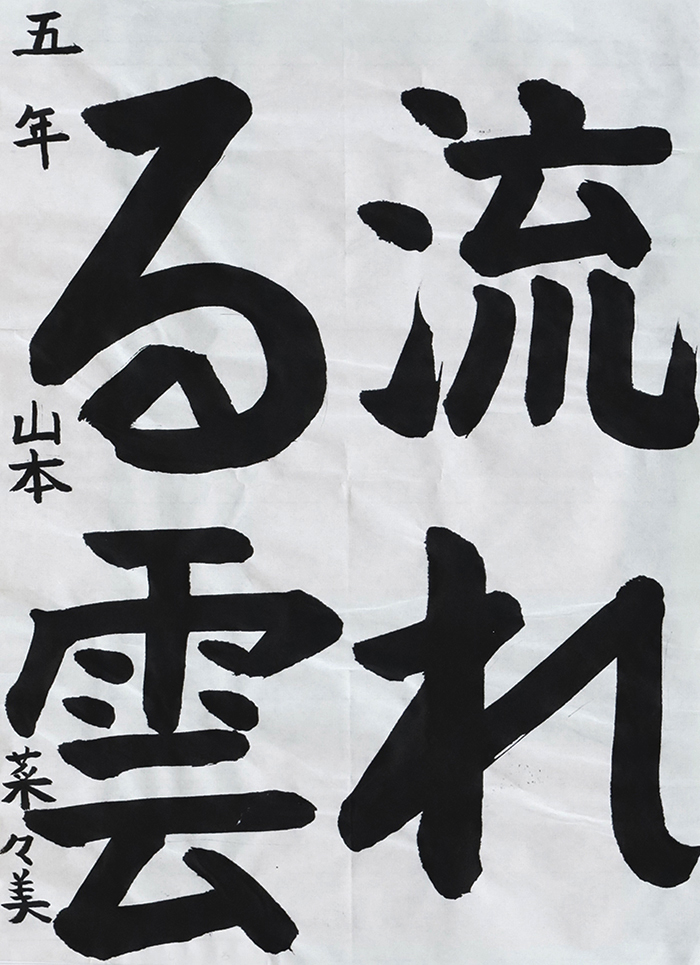 流れ
る雲
五年 山本 菜々美